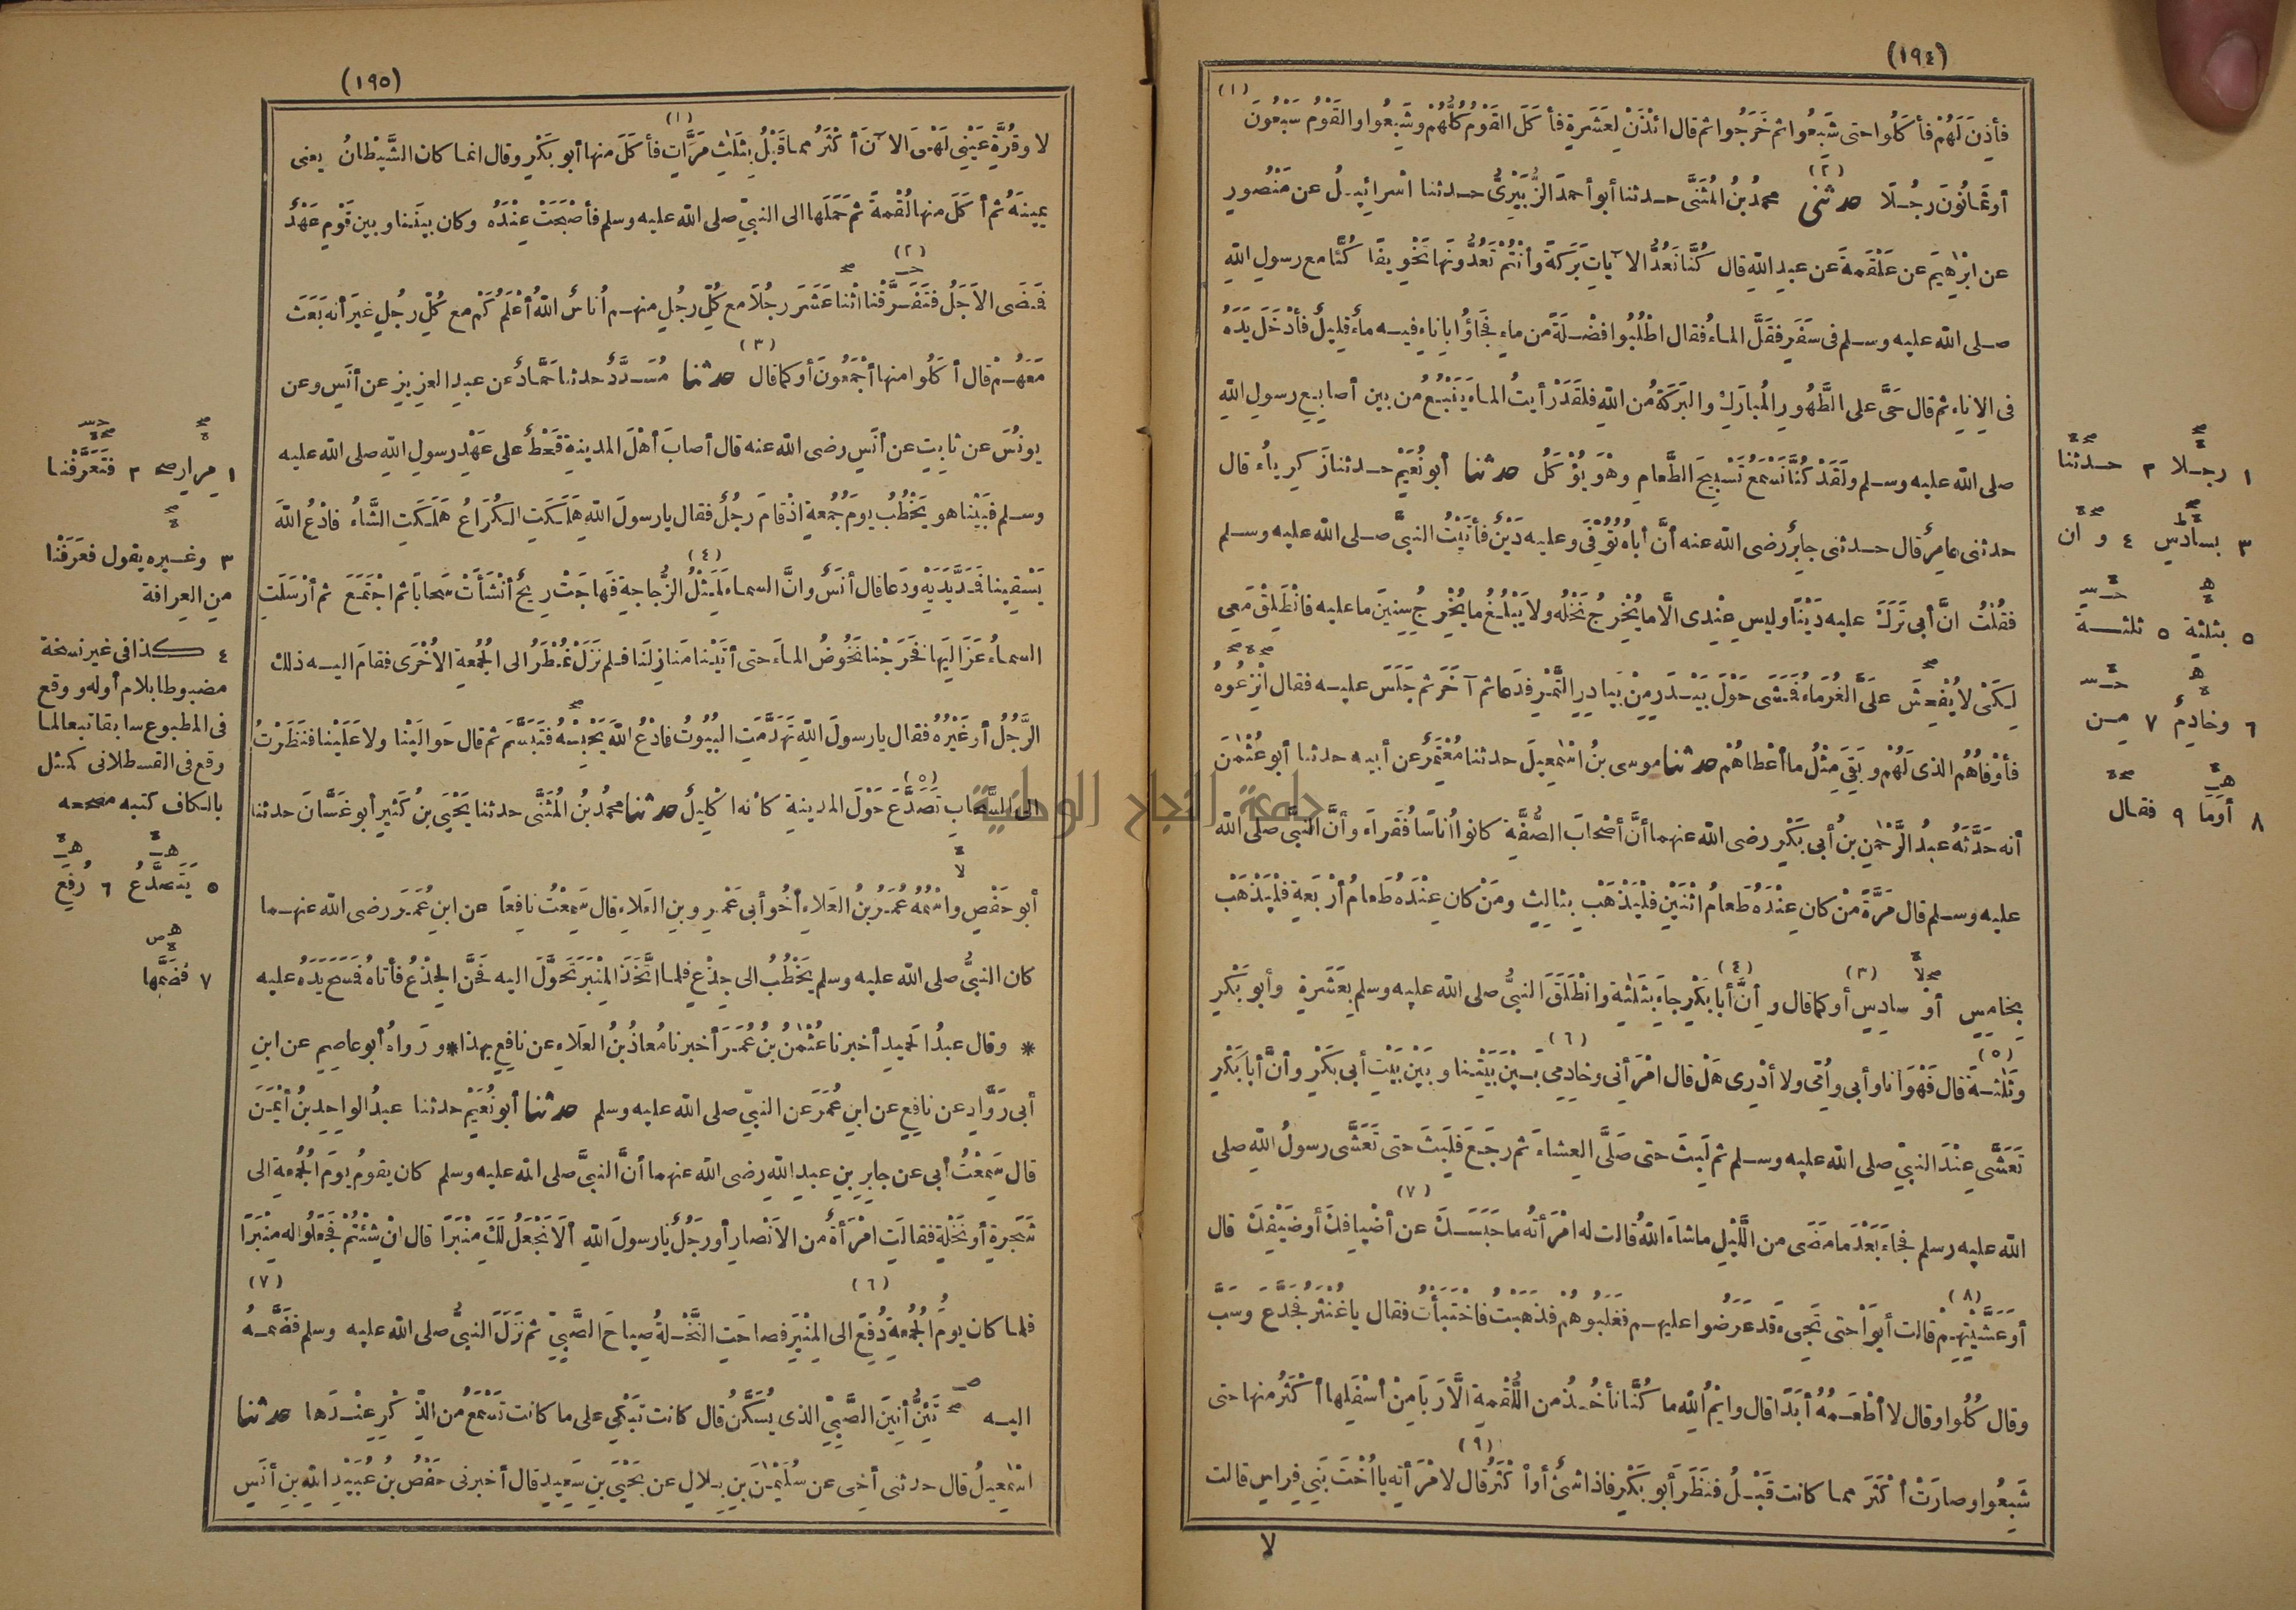 (١٩٤)
(١)
فأذِنَ لَهُمْ فأكَلُوا حتى شَبِعُوا ثم خَرَجُوا ثم قال ائْذَنْ لِعَشَرةٍ فأكَلَ القَوْمُ كُلُّهُمْ وشَبِعُوا والقَوْمُ سَبْعُونَ
أو ثَمانُونَ رجُلًا (٢) حدثنى محمدُ بنُ المُثَنَّى حدثنا أبو أحمدَ الزُّبَيْرِىُّ حدثنا اسْرائِيلُ عن مَنْصُورٍ
عن ابْرٰهِيمَ عن عَلْقَمةَ عن عبدِ اللهِ قال كُنَّا نَعُدُّ الآياتِ بَرَكةً وأنْتُمْ تَعُدُّونَها تَخْوِيفًا كُنَّا مع رسولِ اللهِ
صلى الله عليه وسلم فى سَفَرٍ فقَلَّ الماءُ فقال اطْلُبُوا فَضْلةً من ماءٍ فَجاؤُا باِناءٍ فيه ماءٌ قلِيلٌ فأدْخَلَ يَدَهُ
فى الاِناءِ ثم قال حَىَّ على الطَّهُورِ المُبارَكِ والبَرَكةُ من اللهِ فلقَدْ رأيتُ الماءَ يَنْبُعُ من بين أصابِعِ رسولِ اللهِ
صلى الله عليه وسلم ولَقَدْ كُنَّا نَسْمَعُ تَسْبِيحَ الطَّعامِ وهْوَ يُؤْكَلُ حدثنا أبو نُعَيْمٍ حدثنا زَكَرِياءُ قال
حدثنى عامِرٌ قال حدثنى جابِرٌ رضى الله عنه أنَّ أباهُ تُوُفِّىَ وعليه دَيْنٌ فأتَيْتُ النبىَّ صلى الله عليه وسلم
فقُلْتُ انَّ أبى تَرَكَ عليه دَيْنًا وليسِ عِنْدى الَّا ما يُخْرِجُ نَخْلُه ولا يَبْلُغُ ما يُخْرِجُ سِنِينَ ما عليه فانْطَلِقْ مَعِى
لِكَىْ لا يُفْحِشَ عَلَىَّ الغُرَماءُ فَمَشَى حَوْلَ بَيْدَرٍ مِنْ بَيادِرِ التَّمْرِ فدَعا ثم آخَرَ ثم جَلَسَ عليه فقال انْزِعُوهُ
فأوْفاهُمُ الذى لَهُمْ وبَقِىَ مِثْلُ ما أعْطاهُمْ حدثنا موسى بنُ اسْمٰعِيلَ حدثنا مُعْتَمِرٌ عن أبيه حدثنا أبو عُثْمٰنَ
أنه حَدَّثَهُ عبدُ الرَّحْمٰنِ بنُ أبى بَكْرٍ رضى الله عنهما أنَّ أصْحابَ الصُّفَّةِ كانوا اُناسًا فُقَراءَ وأنَّ النبىَّ صلى الله
عليه وسلم قال مَرَّةً مَنْ كان عِنْدَهُ طَعامُ اثْنَيْنِ فلْيَذْهَبْ بِثالِثٍ ومَنْ كان عِنْدَهُ طَعامُ أرْبَعةٍ فلْيَذْهَبْ
بِخامِسٍ أوْ سادِسٍ (٣) أو كما قال و(٤) أنَّ أبا بَكْرٍ جاءَ بِثَلٰثةٍ وانْطَلَقَ النبىُّ صلى الله عليه وسلم بِعَشَرةٍ وأبو بَكْرٍ
(٥) وثَلٰثةً قال فَهْوَ أنا وأبى واُمِّى ولا أدْرِى هَلْ قال امْرَأتى وخادِمِى (٦) بَيْنَ بَيْتِنا وبَيْنَ بَيْتِ أبى بَكْرٍ وأنَّ أبا بَكْرٍ
تَعَشَّى عِنْدَ النبىِّ صلى الله عليه وسلم ثم لَبِثَ حتى صَلَّى العِشاءَ ثم رجَعَ فلَبِثَ حتى تَعَشَّى رسولُ اللهِ صلى
الله عليه وسلم فجاءَ بَعْدَ ما مَضَى من اللَّيْلِ ما شاءَ اللهُ قالت له امْرَأتُهُ ما حَبَسَكَ (٧) عن أضْيافِكَ أو ضَيْفِكَ قال
(٨) أوعَشَّيْتِهِمْ قالت أبَوْا حتى تَجِىءَ قد عَرَضُوا عليهم فغَلَبُوهُمْ فذَهَبْتُ فاخْتَبَأْتُ فقال يا غُنْثَرُ فَجَدَّعَ وسَبَّ
وقال كُلُوا وقال لا أطْعَمُهُ أبَدًا قال وايْمُ اللهِ ما كُنَّا نأخُذُ من اللُّقْمةِ الَّا رَبَا مِنْ أسْفَلِها أكْثَرُ منها حتى
شَبِعُوا وصارَتْ أكْثَرَ مما كانت قَبْلُ فنَظَرَ أبو بَكْرٍ فاذا شئٌ أو أكْثَرُ (٩) قال لامْرَأتِه يا اُخْتَ بَنِى فِراسٍ قالت
لا
١ رجلا ٢ حدثنا
٣ بسادسٍ ٤ وان
٥ بثلثة ٥ ثلثةً
٦ وخادِمٌ ٧ من
٨ أوَما ٩ فقال
(١٩٥)
لا وقُرَّةِ عَيْنِى لَهْىَ الآنَ أكْثَرُ مما قَبْلُ بِثَلٰثِ مَرَّاتٍ (١) فأكَلَ منها أبو بَكْرٍ وقال انما كان الشَّيْطانُ يعنى
يمِينَهُ ثم أكَلَ منها لُقْمةً ثم حَمَلَها الى النبىِّ صلى الله عليه وسلم فأصْبَحَتْ عِنْدَهُ وكان بينَنا وبين قَوْمٍ عَهْدٌ
فَمَضَى الاَجَلُ فتَفَرَّقْنا (٢) اثْنا عَشَرَ رجُلًا مع كُلِّ رجُلٍ منهم اُناسٌ اللهُ أعْلَمُ كَمْ مع كُلِّ رجُلٍ غيرَ أنه بَعَثَ
مَعَهُمْ قال أكَلُوا منها أجْمَعُونَ أو كما قال (٣) حدثنا مُسَدَّدٌ حدثنا حَمَّادٌ عن عبدِ العزيزِ عن أنَسٍ وعن
يونُسَ عن ثابِتٍ عن أنَسٍ رضى الله عنه قال أصابَ أهْلَ المدينةِ قَحْطٌ على عَهْدِ رسولِ اللهِ صلى الله عليه
وسلم فبَيْنا هو يَخْطُبُ يومَ جُمُعةٍ اذْ قامَ رَجُلٌ فقال يا رسولَ اللهِ هَلَكَتِ الكُرَاعُ هَلَكَتِ الشَّاءُ فادْعُ اللهَ
يَسْقِينا فَمَدَّ يَدَيْهِ ودَعا قال أنَسٌ وانَّ السماءَ لَمِثْلُ (٤) الزُّجاجةِ فَهاجَتْ رِيحٌ أنْشَأَتْ سَحابًا ثم اجْتَمَعَ ثم أرْسَلَتِ
السماءُ عَزَالِيَها فخَرَجْنا نَخُوضُ الماءَ حتى أتَيْنا مَنازِلَنا فلم نَزَلْ نُمْطَرُ الى الجُمُعةِ الاُخْرَى فقامَ اليه ذلك
الرَّجُلُ أو غَيْرُهُ فقال يا رسولَ اللهِ تَهَدَّمَتِ البُيُوتُ فادْعُ اللهَ يَحْبِسْهُ فتَبَسَّمَ ثم قال حَوالَيْنا ولا عَلَيْنا فنَظَرْتُ
الى السَّحابِ تَصَدَّعَ (٥) حَوْلَ المدينةِ كأنه اكْلِيلٌ حدثنا محمدُ بنُ المُثَنَّى حدثنا يَحْيَى بنُ كَثِيرٍ أبو غَسَّانَ حدثنا
أبو حَفْصٍ واسْمُهُ عُمَرُ بنُ العَلاءِ أخُو أبى عَمْرِو بنِ العَلاءِ قال سَمِعْتُ نافِعًا عن ابنِ عُمَرَ رضى الله عنهما
كان النبىُّ صلى الله عليه وسلم يَخْطُبُ الى جِذْعٍ فلما اتَّخَذَ المِنْبَرَ تَحَوَّلَ اليه فَحَنَّ الجِذْعُ فأتاهُ فمَسَحَ يَدَهُ عليه
* وقال عبدُ الحَمِيدِ أخبرنا عُثْمٰنُ بنُ عُمَرَ أخبرنا مُعاذُ بنُ العَلاءِ عن نافِعٍ بهذا * ورَواهُ أبو عاصِمٍ عن ابنِ
أبى رَوَّادٍ عن نافِعٍ عن ابنِ عُمَرَ عن النبىِّ صلى الله عليه وسلم حدثنا أبو نُعَيْمٍ حدثنا عبدُ الواحِدِ بنُ أيْمَنَ
قال سَمِعْتُ أبى عن جابِرِ بنِ عبدِ اللهِ رضى الله عنهما أنَّ النبىَّ صلى الله عليه وسلم كان يقومُ يومَ الجُمُعةِ الى
شَجَرةٍ أو نَخْلةٍ فقالَتِ امْرَأةٌ من الاَنْصارِ أو رَجُلٌ يا رسولَ اللهِ ألَا نَجْعَلُ لَكَ مِنْبَرًا قال انْ شِئْتُمْ فَجَعَلُوا له مِنْبَرًا
فلما كان يومُ الجُمُعةِ دُفِعَ (٦) الى المِنْبَرِ فصاحَتِ النَّخْلةُ صِياحَ الصَّبِىِّ ثم نَزَلَ النبىُّ صلى الله عليه وسلم فضَمَّهُ (٧)
اليه تَئِنُّ أنِينَ الصَّبِىِّ الذى يُسَكَّنُ قال كانت تَبْكِى على ما كانت تَسْمَعُ من الذِّكْرِ عِنْدَها حدثنا
اسْمٰعِيلُ قال حدثنى أخِى عن سُلَيْمٰنَ بنِ بِلالٍ عن يَحْيَى بنِ سَعِيدٍ قال أخبرنى حَفْصُ بنُ عُبَيْدِ اللهِ بنِ أنَسٍ
١ مرارصح ٢ فتَعَرَّفْنا
٣ وغيره يقول فعَرَفْنا
من العِرافة
٤ كذا فى غير نسخة
مضبوطا بلام أوله ووقع
فى المطبوع سابقا تبعا لما
وقع فى القسطلانى كمثل
بالكاف كتبه مصححه
٥ يَتَصَدَّعُ ٦ رُفِعَ
٧ فضَمَّها
جامعة النجاح الوطنية